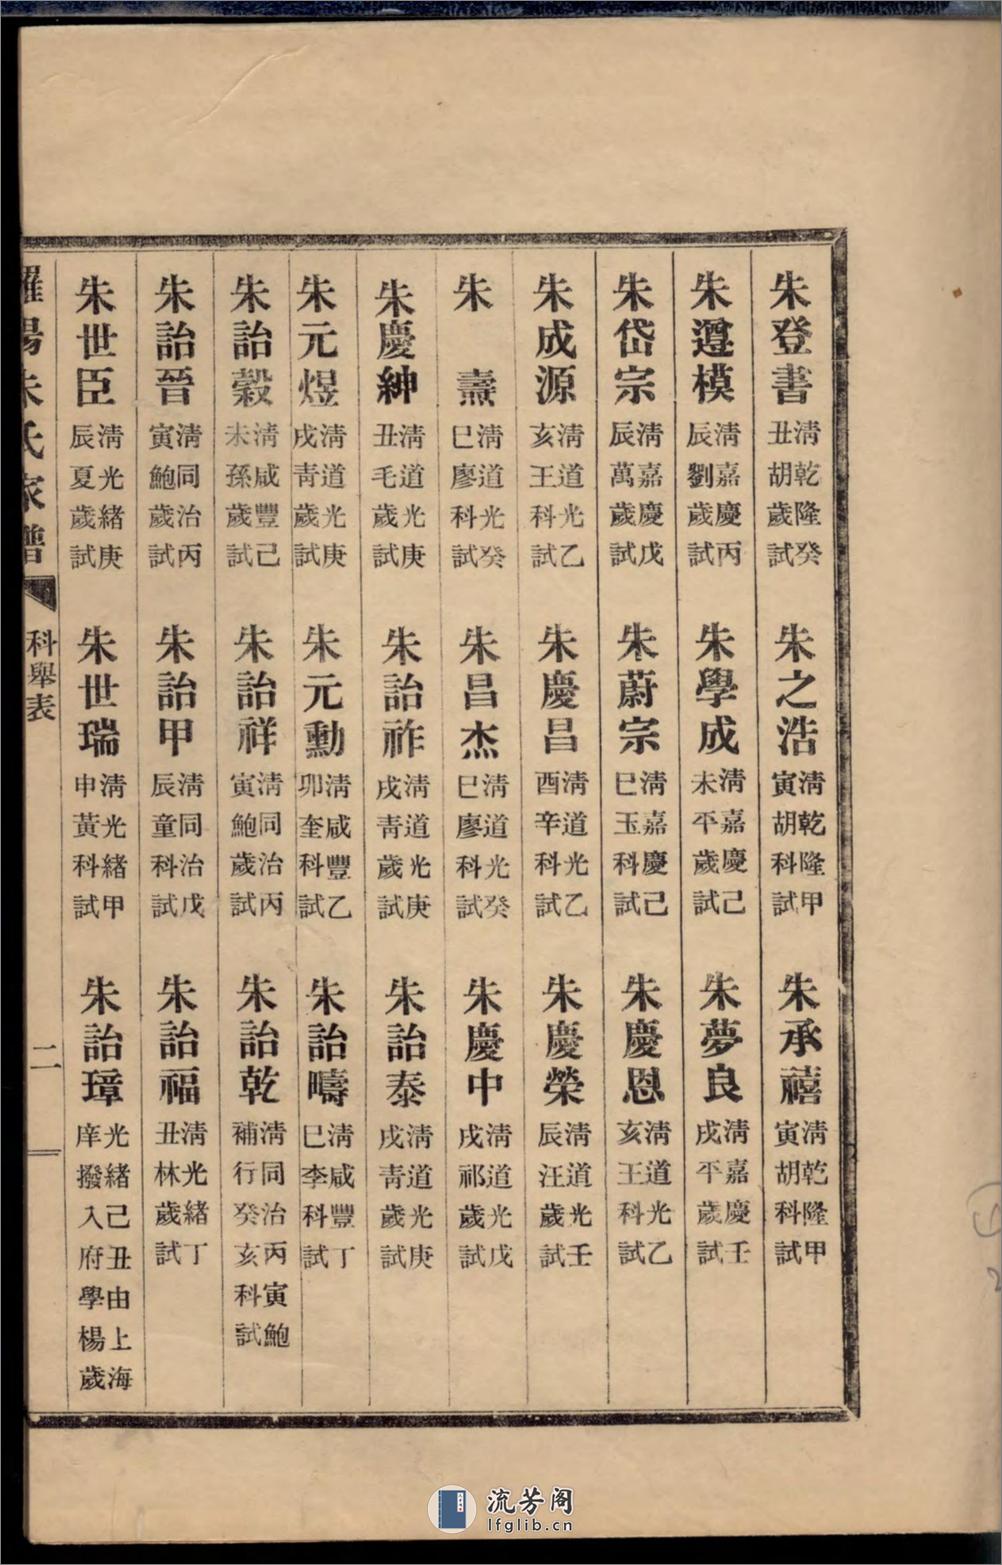 朱登書 清乾隆癸丑胡歲試 朱之浩 清乾隆甲寅胡科試 朱承禧 清乾隆甲寅胡科試
朱遵模 清嘉慶丙辰劉歲試 朱學成 清嘉慶己未平歲試 朱夢良 清嘉慶壬戌平歲試
朱岱宗 清嘉慶戊辰萬歲試 朱蔚宗 清嘉慶己巳玉科試 朱慶恩 清道光乙亥王科試
朱成源 清道光乙亥王科試 朱慶昌 清道光乙酉辛科試 朱慶榮 清道光壬辰汪歲試
朱燾 清道光癸巳廖科試 朱昌杰 清道光癸巳廖科試 朱慶中 清道光戊戌祁歲試
朱慶紳 清道光庚丑毛歲試 朱詒祚 清道光庚戌青歲試 朱詒泰 清道光庚戌青歲試
朱元煜 清道光庚戌青歲試 朱元勳 清咸豐乙卯奎科試 朱詒疇 清咸豐丁巳李科試
朱詒穀 清咸豐己未孫歲試 朱詒祥 清同治丙寅鮑歲試 朱詒乾 清同治丙寅鮑補行癸亥科試
朱詒晉 清同治丙寅鮑歲試 朱詒甲 清同治戊辰童科試 朱詒福 清光緒丁丑林歲試
朱世臣 清光緒庚辰夏歲試 朱世瑞 清光緒甲申黃科試 朱詒璋 光緒己丑由上海庠撥入府學楊歲
羅陽朱氏家譜 科舉表 二
流芳阁
lfglib.cn